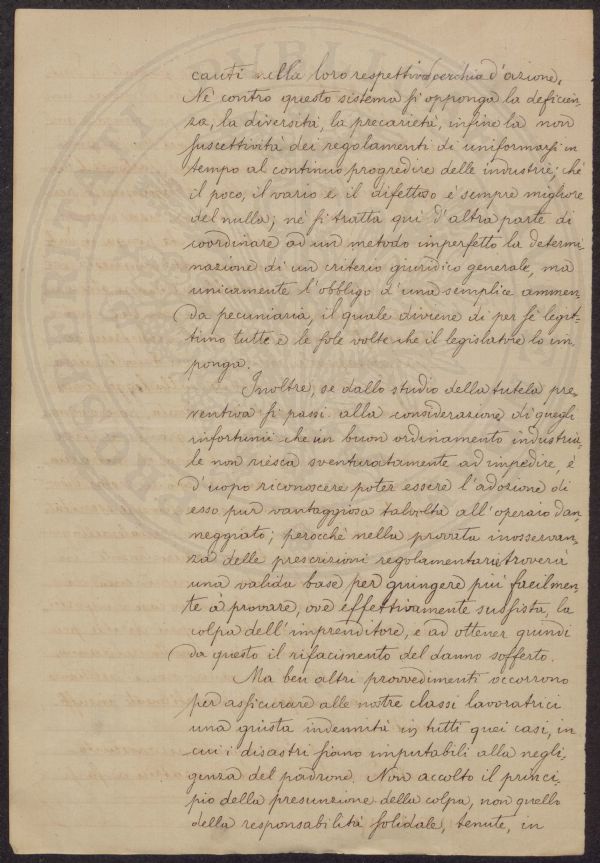 canti nella loro respettiva cerchia d'azione.
Nè contro questo sistema si opponga la deficien-
za, la diversità, la precarietà, infine la non
suscettività dei regolamenti di uniformarsi in
tempo al continuo progredire delle industrie; chè
il poco, il vario e il difettoso è sempre migliore
del nulla; nè si tratta qui d'altra parte di
coordinare ad un metodo imperfetto la determi-
nazione di un criterio giuridico generale, ma
unicamente l'obbligo d'una semplice ammen-
da pecuniaria, il quale diviene di per sè legit-
timo tutte e le sole volte che il legislatore lo im-
ponga.
Inoltre, se dallo studio della tutela pre-
ventiva si passi alla considerazione di quegli
infortunii che un buon ordinamento industria-
le non riesca sventuratamente ad impedire, è
d'uopo riconoscere poter essere l'adozione di
esso pur vantaggiosa talvolta all'operaio dan-
neggiato; perocchè nella provata inosservan-
za delle prescrizioni regolamentarie troverà
una valida base per giungere più facilmen-
te a provare, ove effettivamente sussista, la
colpa dell'imprenditore, e ad ottener quindi
da questo il rifacimento del danno sofferto.
Ma ben altri provvedimenti occorrono
per assicurare alle nostre classi lavoratrici
una giusta indennità in tutti quei casi, in
cui i disastri siano imputabili alla negli-
genza del padrone. Non accolto il princi-
pio della presunzione della colpa, non quello
della responsabilità solidale, tenute, in